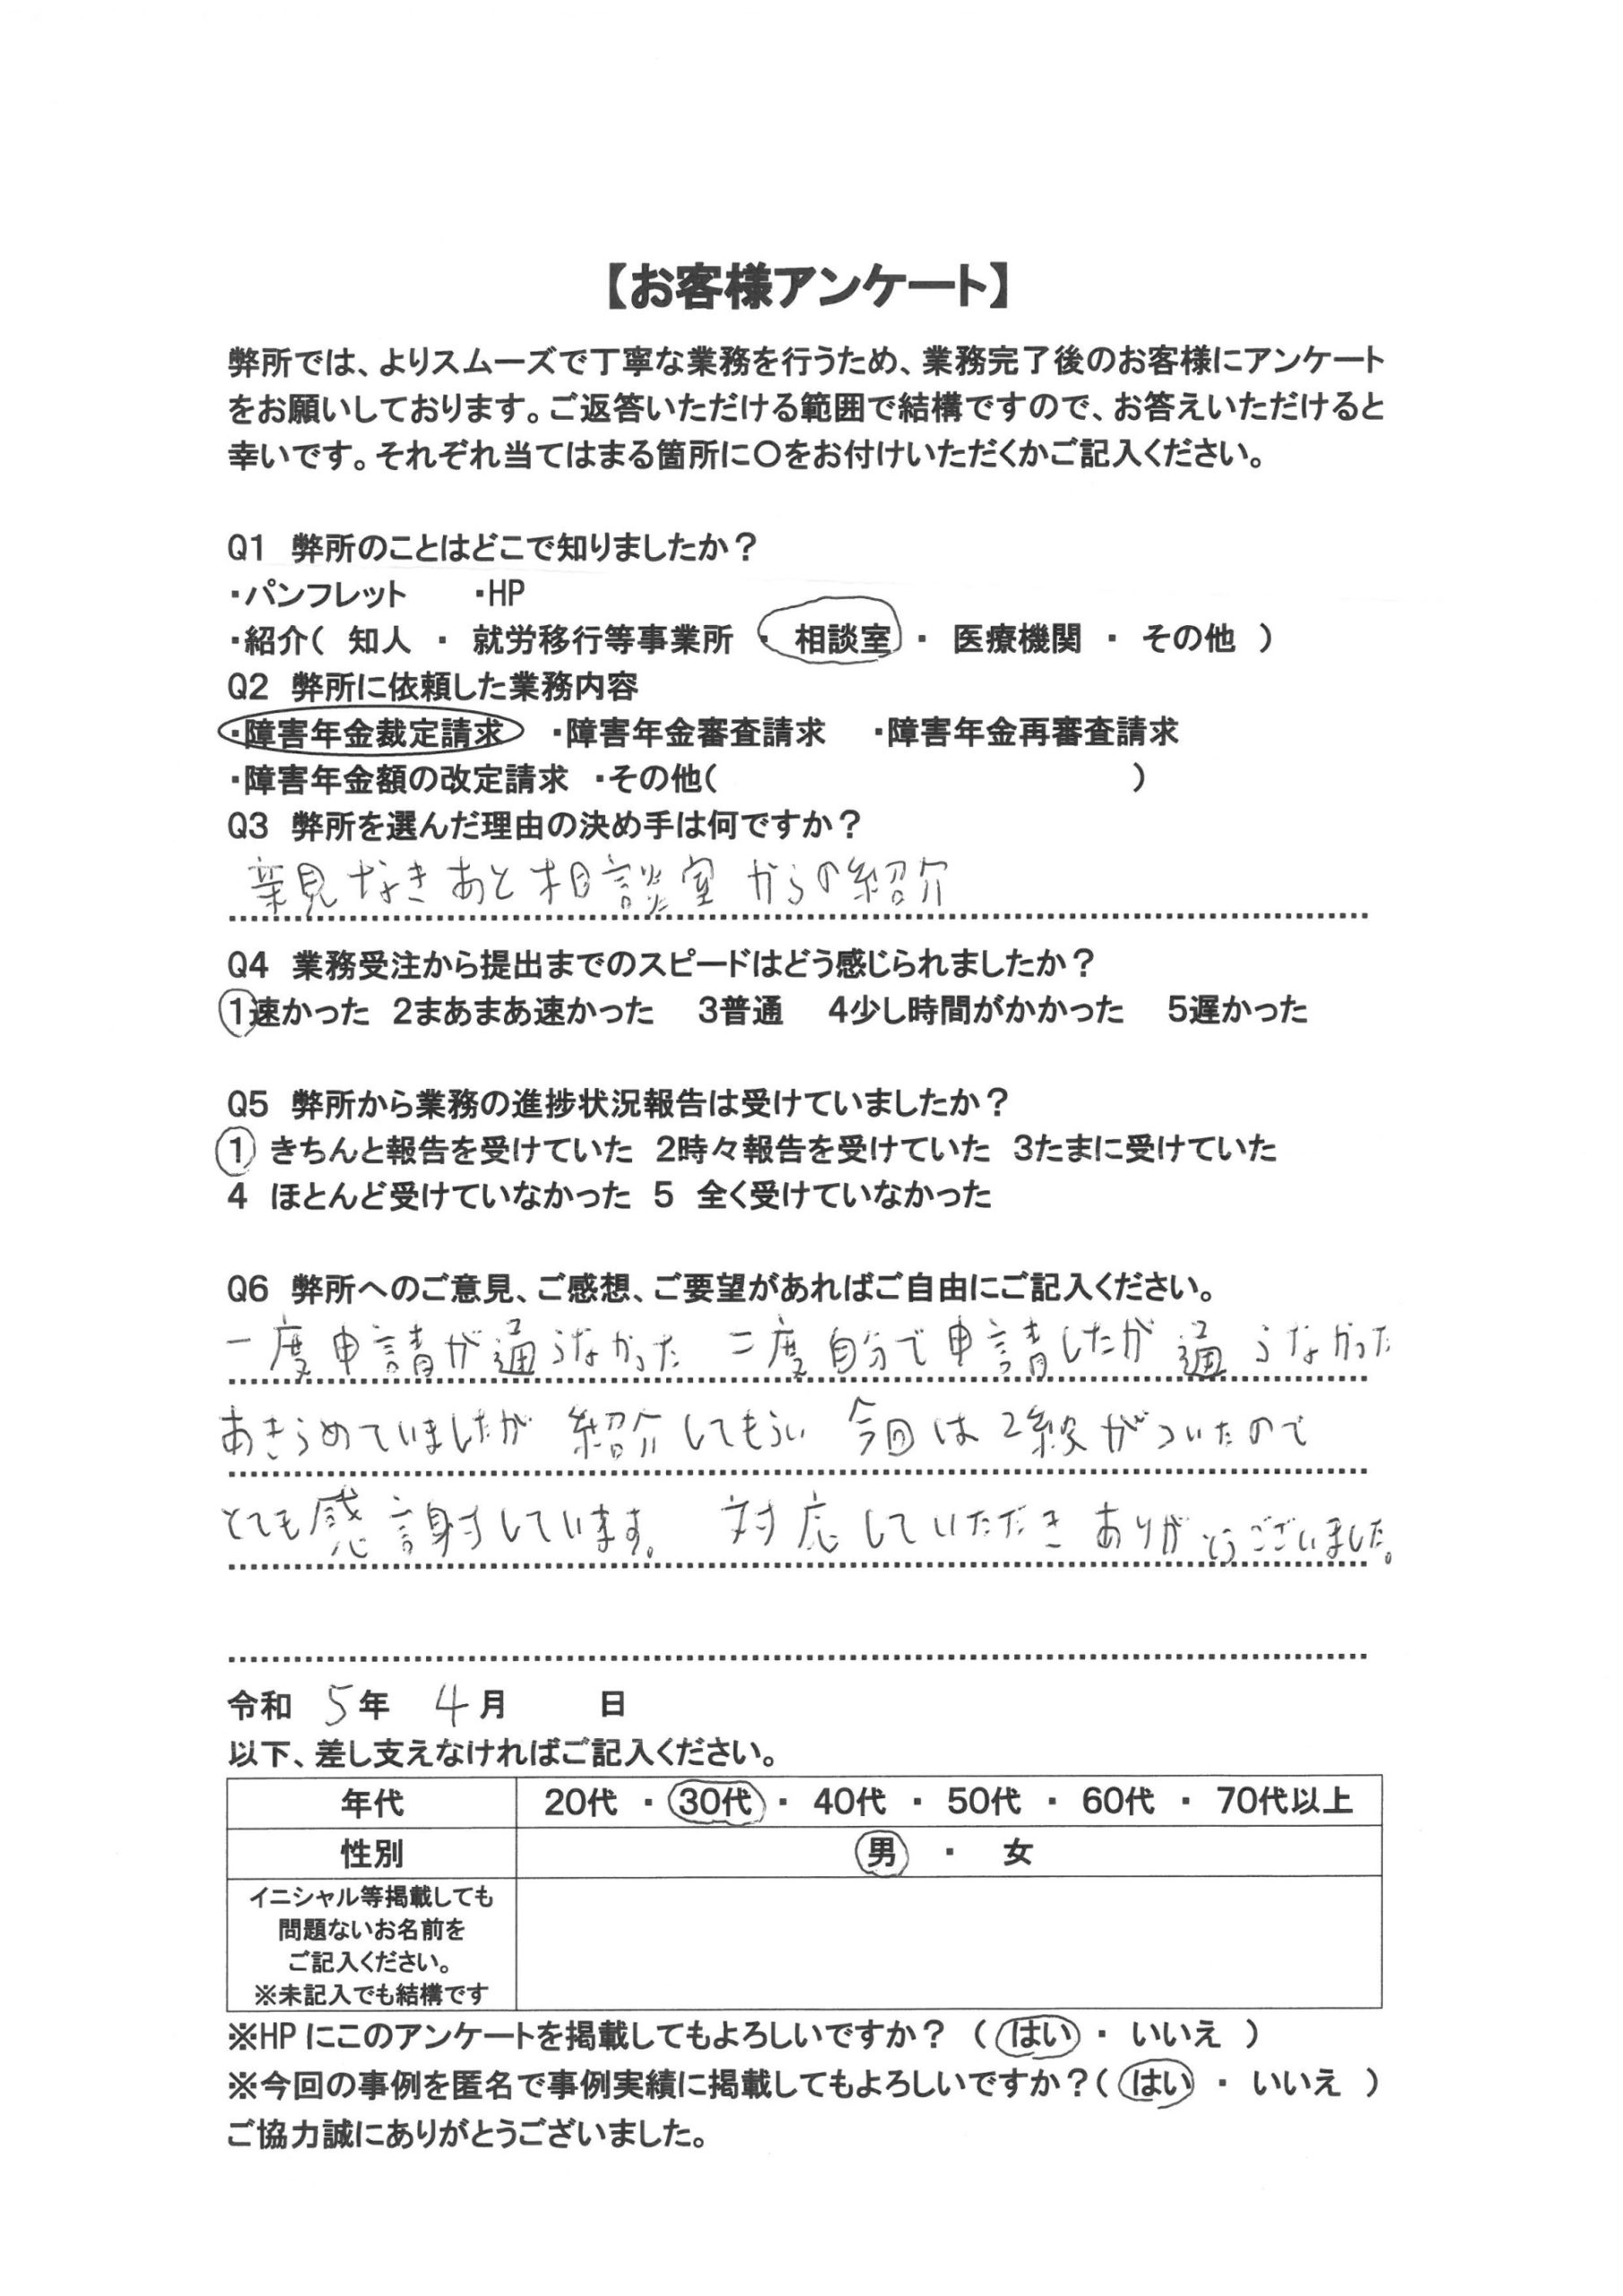 【お客様アンケート】
弊所では、よりスムーズで丁寧な業務を行うため、業務完了後のお客様にアンケート
をお願いしております。ご返答いただける範囲で結構ですので、お答えいただけると
幸いです。それぞれ当てはまる箇所に〇をお付けいただくかご記入ください。
Q1　弊所のことはどこで知りましたか？
・パンフレット　　・HP
・紹介(　知人　・　就労移行等事業所　・　相談室　・　医療機関　・　その他　)
Q2　弊所に依頼した業務内容
・障害年金裁定請求　・障害年金審査請求　・障害年金再審査請求
・障害年金額の改定請求　・その他(　　　　　　　　　　　　　)
Q3　弊所を選んだ理由の決め手は何ですか？
親なきあと相談室からの紹介
Q4　業務受注から提出までのスピードはどう感じられましたか？
1速かった　2まあまあ速かった　3普通　4少し時間がかかった　5遅かった
Q5　弊所から業務の進捗状況報告は受けていましたか？
1　きちんと報告を受けていた　2時々報告を受けていた　3たまに受けていた
4　ほとんど受けていなかった　5　全く受けていなかった
Q6　弊所へのご意見、ご感想、ご要望があればご自由にご記入ください。
一度申請が通らなかった 二度自分で申請したが通らなかった
あきらめていましたが 紹介してもらい 今回は2級がついたので
とても感謝しています。 対応していただきありがとうございました。
令和　5年　4月　　　日
以下、差し支えなければご記入ください。
年代　20代　・　30代　・　40代　・　50代　・　60代　・　70代以上
性別　男　・　女
イニシャル等掲載しても
問題ないお名前を
ご記入ください。
※未記入でも結構です
※HPにこのアンケートを掲載してもよろしいですか？（　はい　・　いいえ　）
※今回の事例を匿名で事例実績に掲載してもよろしいですか？（　はい　・　いいえ　）
ご協力誠にありがとうございました。